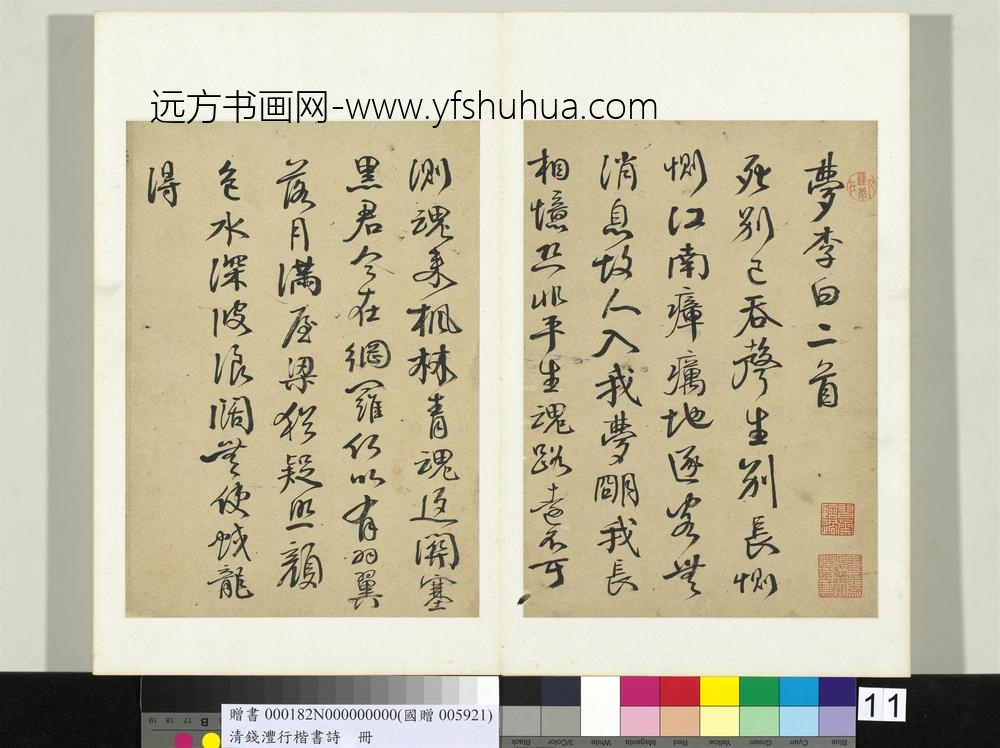 远方书画网-www.yfshuhua.com
夢李白二首
死別已吞聲生別長惻
惻江南瘴癘地逐客無
消息故人入我夢明我長
相憶恐非平生魂路遠不可
測魂来楓林青魂返關塞
黑君今在網羅何以有羽翼
落月滿屋梁猶疑照顏
色水深波浪闊無使蛟龍
得
11
Black
3/Color
White
Magenta
Red
Yellow
Green
Cyan
Blue
19 18 17 16 B
贈書 000182N000000000(國贈 005921)
清錢灃行楷書詩 冊